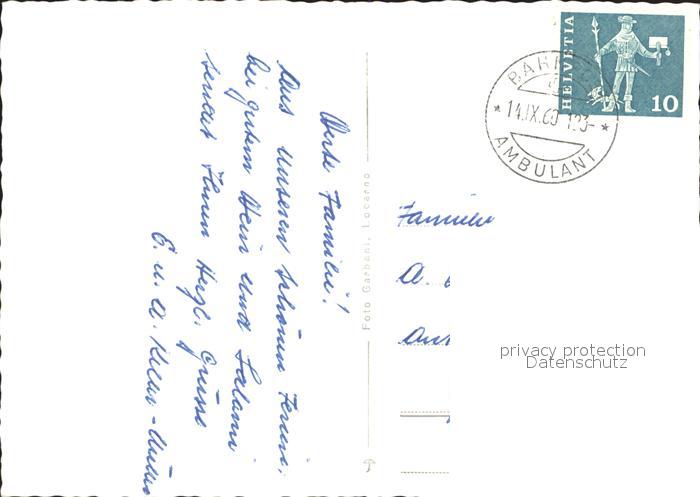 HELVETIA
10
14.IX.60
AMBULANT
Werte Familie!
Aus unseren schönen Ferien,
bei gutem Wein und Salami
sendet Ihnen Herzl. Grüsse
E. u. A.
Foto Garbani, Locarno
Familie
A.
privacy protection
Datenschutz